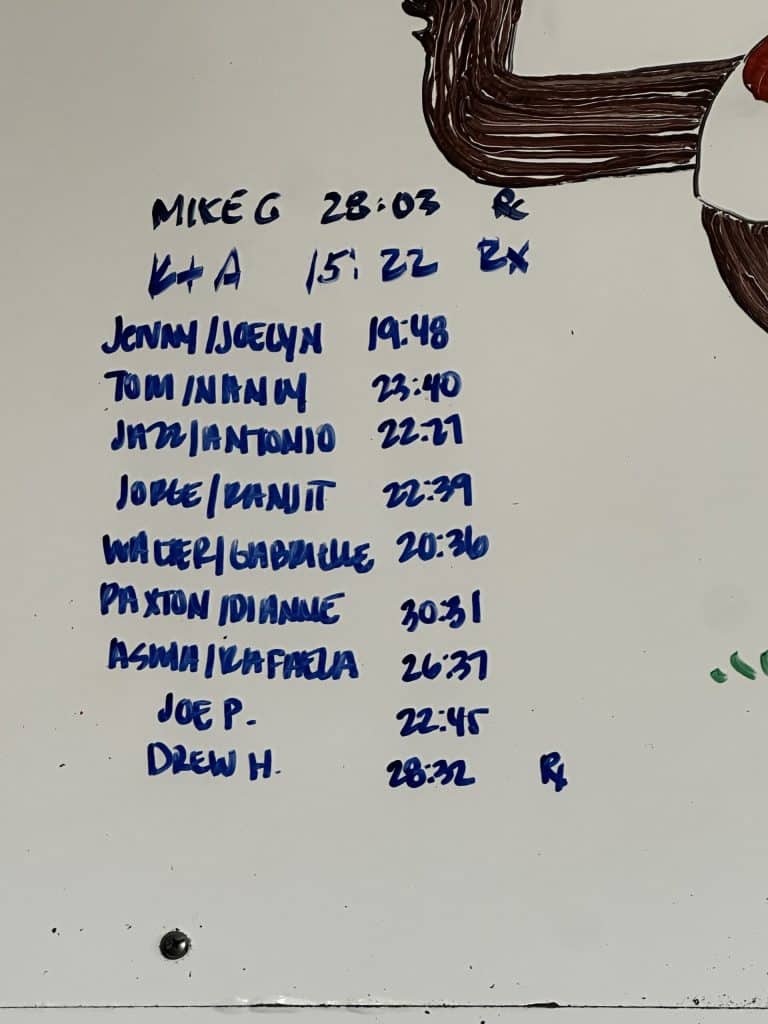 MIKE G 28:03 Rx
K+A 15:22 Rx
JENNY/JOELYN 19:48
TOM/NANCY 23:40
JAZZ/ANTONIO 22:27
JORGE/RANJIT 22:39
WALTER/GABRIELLE 20:36
PAXTON/DIANNE 30:31
ASMA/RAFAELA 26:37
JOE P. 22:45
DREW H. 28:32 Rx